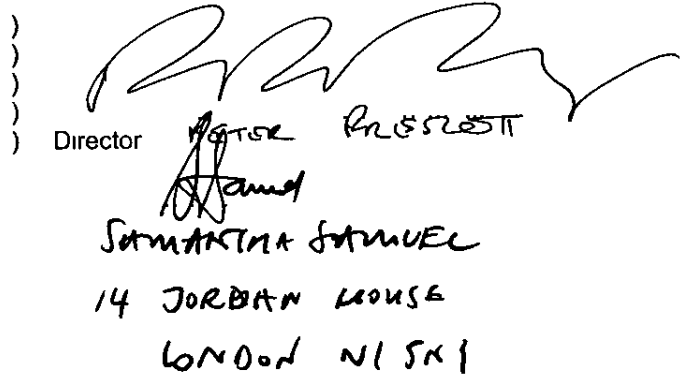 )
)
)
)
) Director PETER PRESCOTT
SAMANTHA SAMUEL
14 JORDAN HOUSE
LONDON N1 5N1